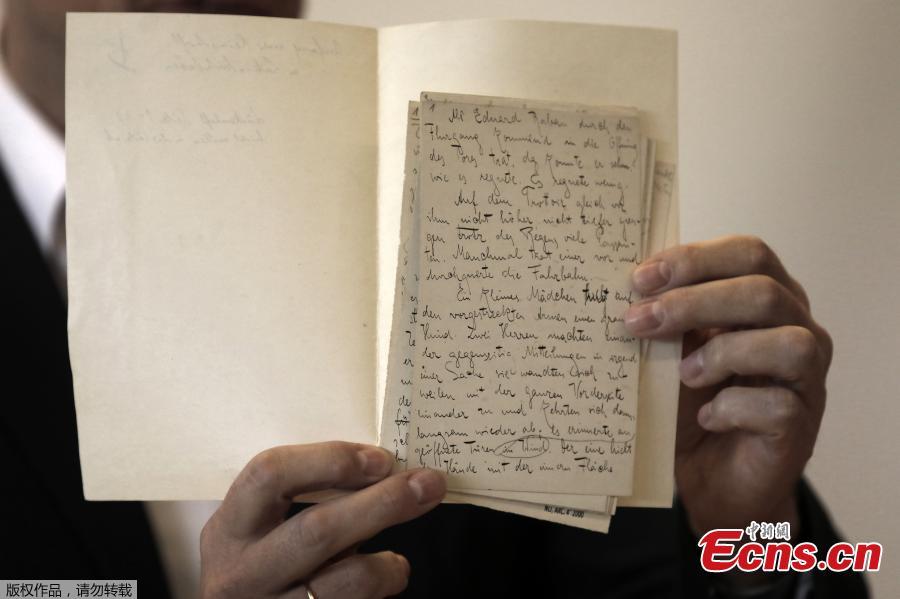 1
Als Eduard Raban durch den
Flurgang kommend in die Öffnung
des Tores trat, da konnte er sehn
wie es regnete. Es regnete wenig.
Auf dem Trottoir gleich vor
ihm nicht höher nicht tiefer gien-
gen trotz des Regens viele Passan-
ten. Manchmal trat einer vor und
durchquerte die Fahrbahn.
Ein kleines Mädchen auf
den vorgestreckten Armen einen grauen
Hund. Zwei Herren machten einan-
der gegenseitig Mitteilungen in irgend
einer Sache sie wandten sich zu-
weilen mit der ganzen Vorderseite
einander zu und kehrten sich dann
langsam wieder ab. Es erinnerte an
geöffnete Türen im Wind. Der eine hielt
die Hände mit der innern Fläche
NLI, ARC. 4° 2000
中新網
Ecns.cn
版权作品，请勿转载